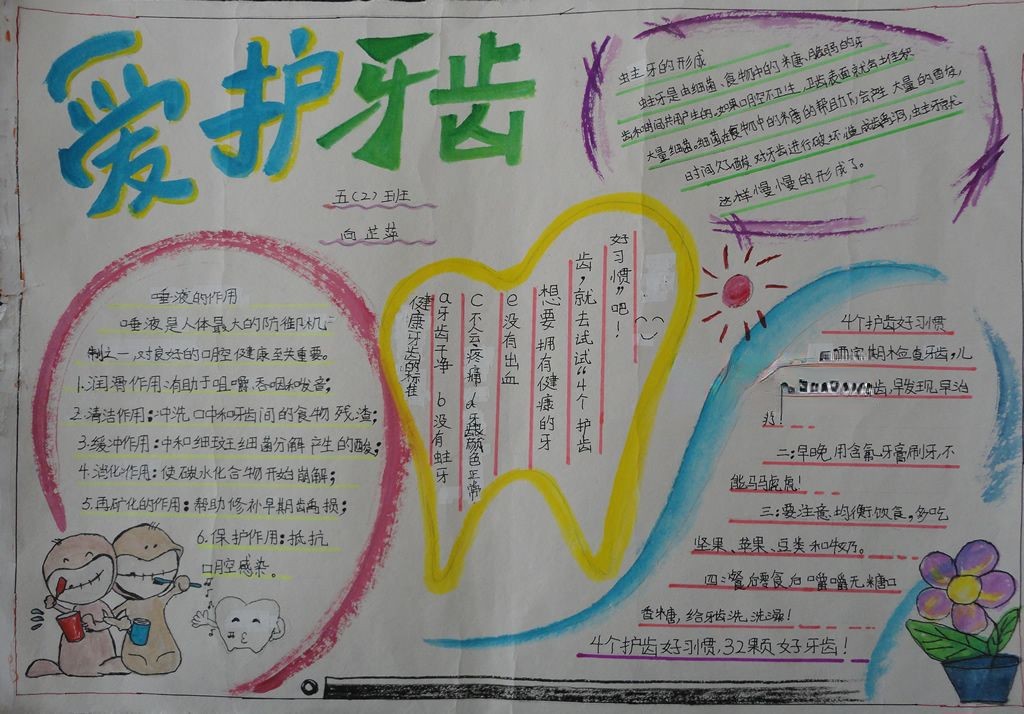 爱护牙齿
五（2）班
向芷萍
虫主牙的形成
蛀牙是由细菌、食物中的糖、脆弱的牙
齿和时间共同产生的。如果口腔不卫生，牙齿表面就会堆积
大量细菌。细菌在食物中的糖的帮助下，会产生大量的酉俊，
时间久了酸对牙齿进行破坏，造成龋洞，虫主牙就
这样慢慢的形成了。
唾液的作用
唾液是人体最大的防御机
制之一，对良好的口腔健康至关重要。
1.润滑作用：有助于咀嚼、吞咽和发音；
2.清洁作用：冲洗口中和牙齿间的食物残渣；
3.缓冲作用：中和细致王细菌分解产生的酸；
4.消化作用：使碳水化合物开始崩解；
5.再矿化的作用：帮助修补早期龋损；
6.保护作用：抵抗
口腔感染。
健康牙齿的标准
a牙齿干净 b没有蛀牙
c不会疼痛 d牙龈颜色正常
e没有出血
想要拥有健康的牙
齿，就去试试“4个护齿
好习惯”吧！
4个护齿好习惯
定期检查牙齿，儿
齿，早发现，早治
疗！
二：早晚用含氟牙膏刷牙，不
能马马虎虎！
三：要注意均衡饮食，多吃
坚果、苹果、豆类和牛奶。
四：餐后零食后嚼嚼无糖口
香糖，给牙齿洗洗澡！
4个护齿好习惯，32颗好牙齿！